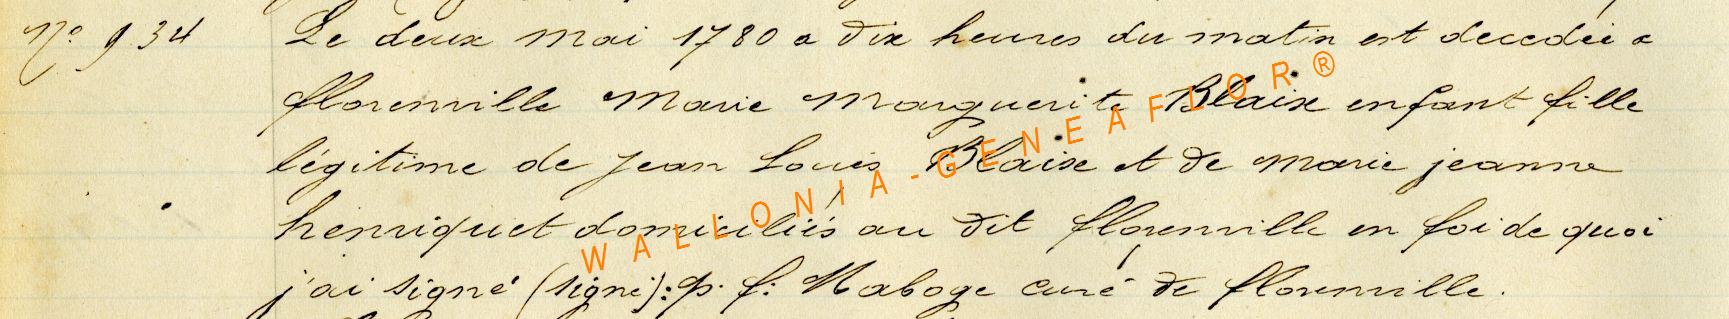 No 934 Le deux mai 1780 a dix heures du matin est decedée a
florenville Marie Marguerite Blaise enfant fille
légitime de Jean Louis Blaise et de Marie jeanne
henriquet domiciliés au dit florenville en foi de quoi
j'ai signé (signé): p. f: Maboge curé de florenville.
WALLONIA-GENEAFLOR®